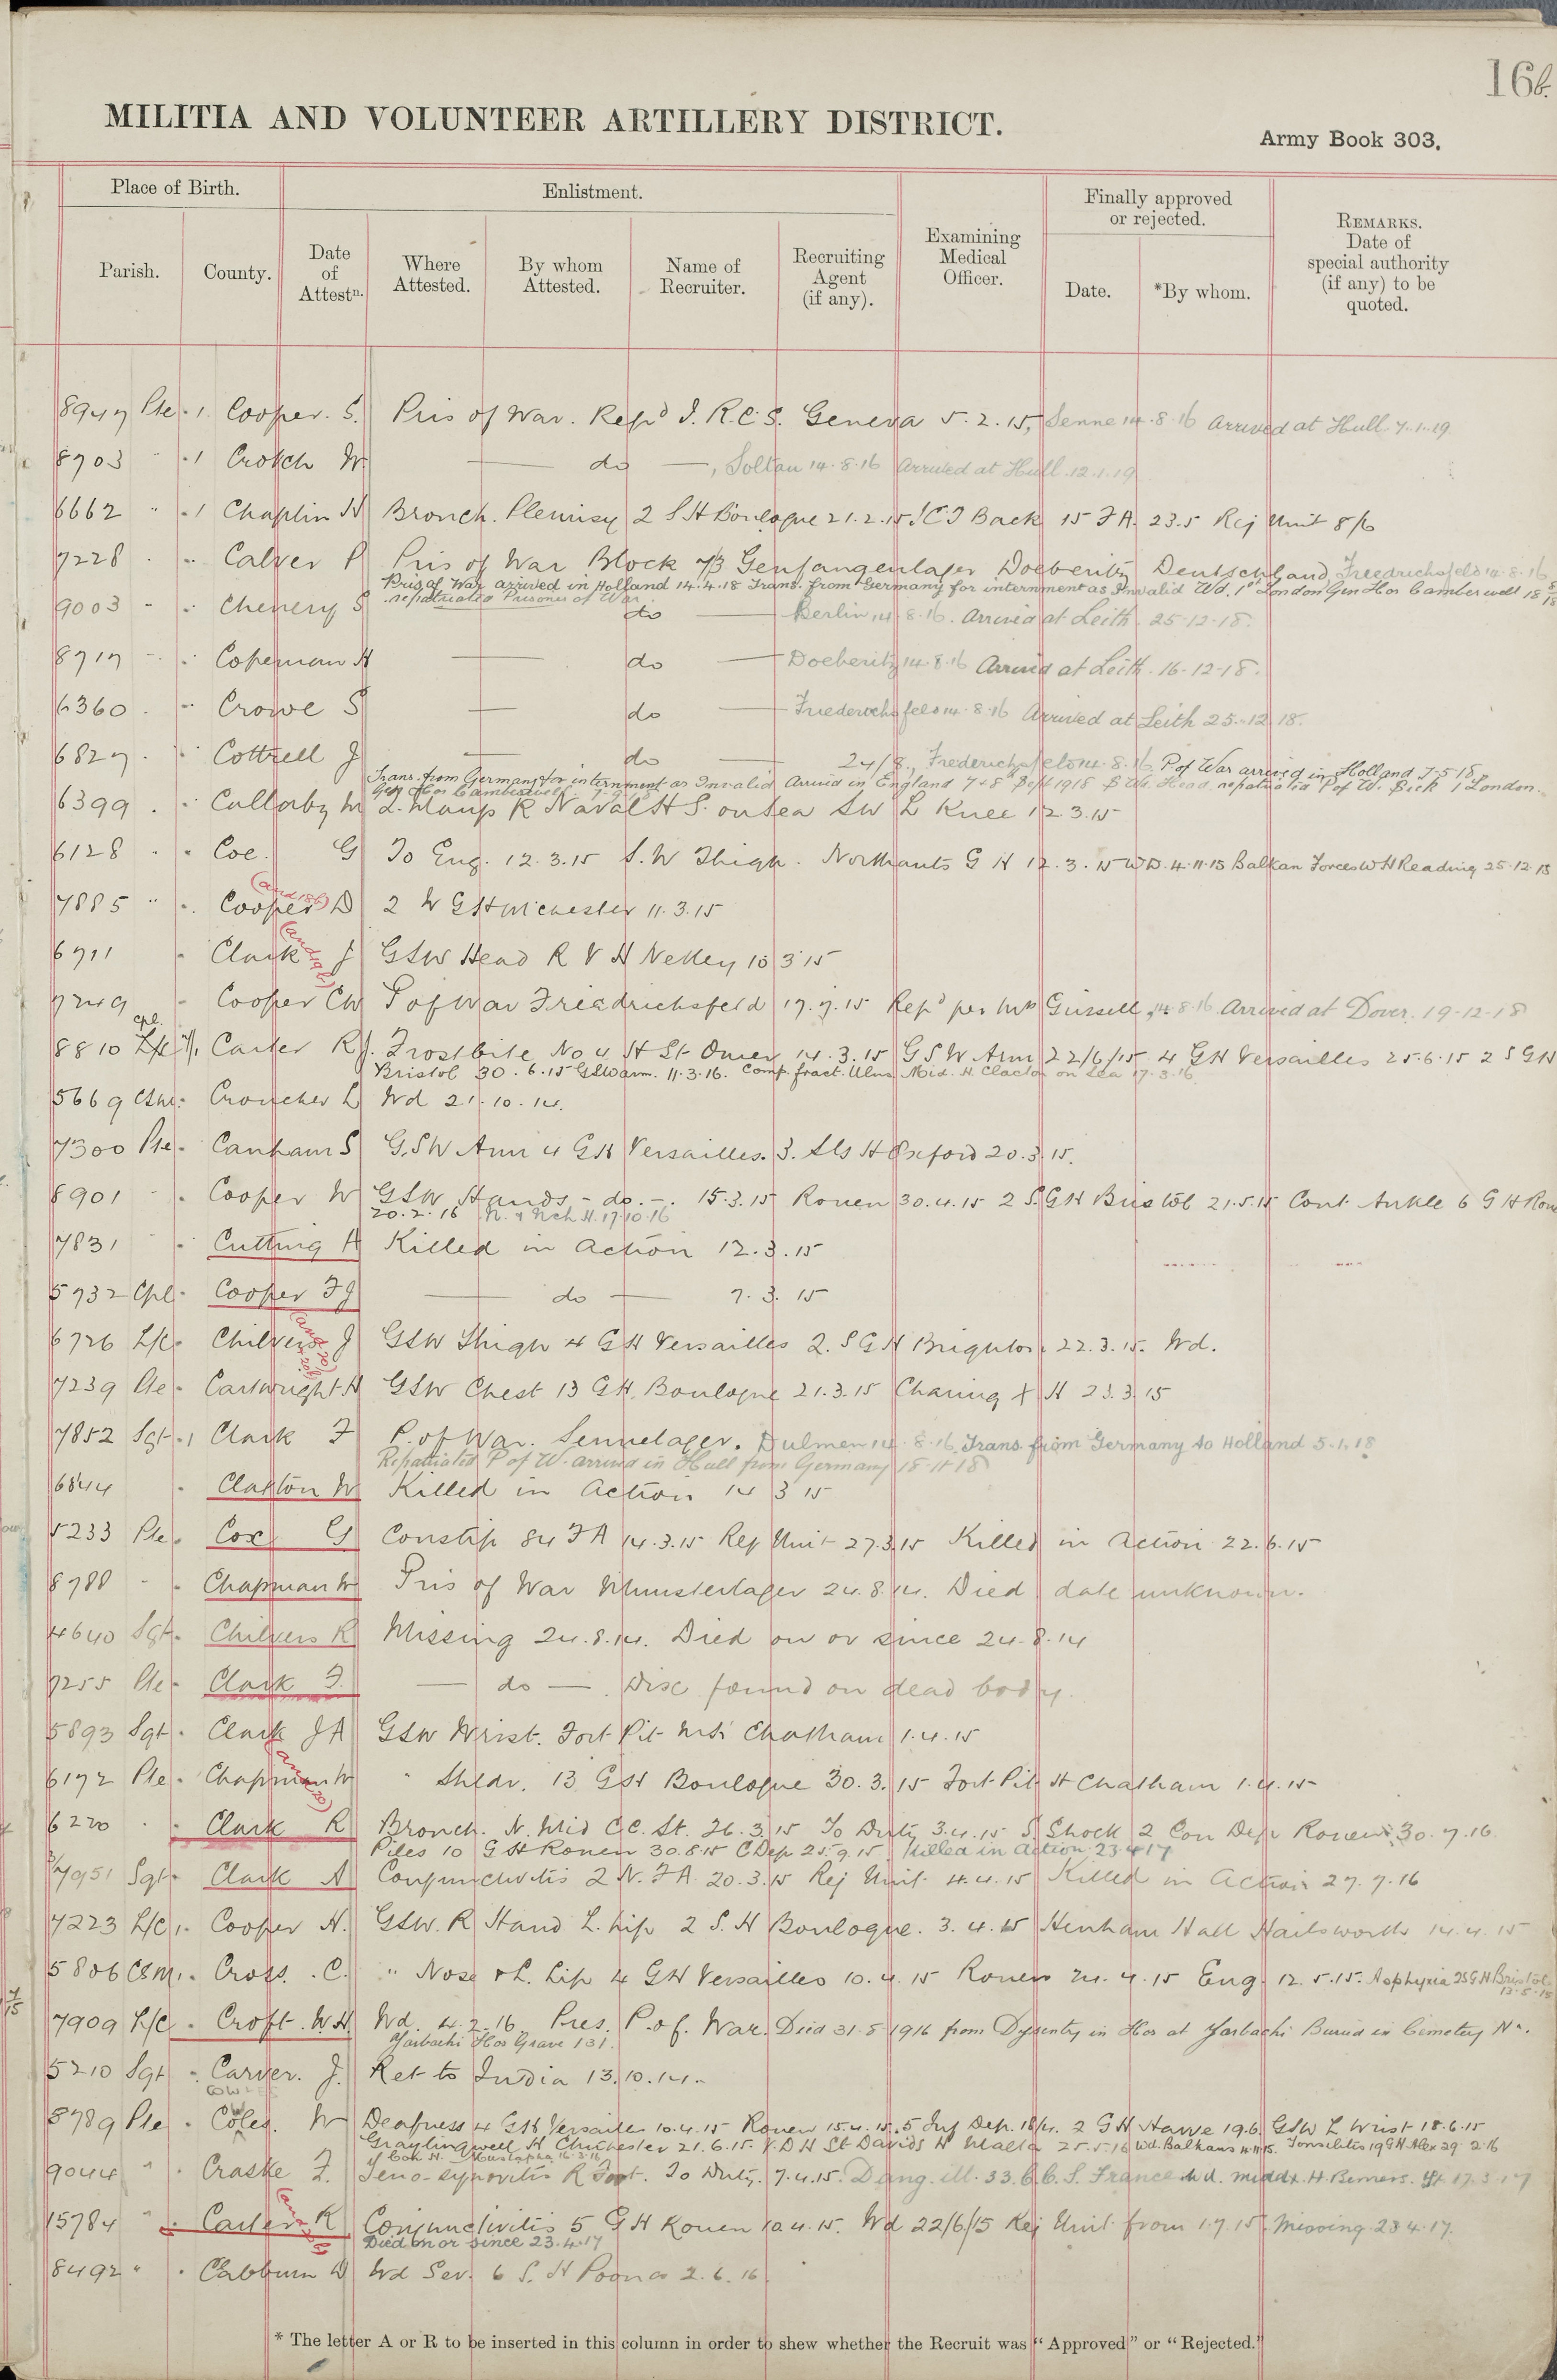 16b.
MILITIA AND VOLUNTEER ARTILLERY DISTRICT.
Army Book 303.
Place of Birth.
Enlistment.
Finally approved
or rejected.
Parish.
County.
Date
of
Attestn.
Where
Attested.
By whom
Attested.
Name of
Recruiter.
Recruiting
Agent
(if any).
Examining
Medical
Officer.
Date.
*By whom.
REMARKS.
Date of
special authority
(if any) to be
quoted.
8947 Pte . 1 Cooper. S. Pris of War. Repd I. R.C.S. Geneva 5.2.15, Senne 14.8.16 Arrived at Hull 7.1.19
8703 " . 1 Crotch W. do , Soltau 14.8.16 Arrived at Hull 12.1.19
6662 " . 1 Chaplin H Bronch. Pleurisy 2 S H Boulogne 21.2.15 I C I Back 15 F A. 23.5 Rej Unit 8/6
7228 Calver P Pris of War Block 7/3 Genfangenlager Doeberitz Deutschland Freedrichsfeld 14.8.16
Pris of War arrived in Holland 14.4.18 Trans. from Germany for internment as Invalid Wd. 1st London Gen Hos Camberwell 18
repatriated Prisoner of War
9003 Chenery S do Berlin 14.8.16. Arrived at Leith. 25.12.18.
8717 Copeman H do Doeberitz 14.8.16 Arrived at Leith. 16-12-18.
6360 Crowe S do Friederichsfeld 14.8.16 Arrived at Leith 25.12.18.
6827 Cottrell J do 24/8., Frederichsfeld 14.8.16 P of War arrived in Holland 7.5.18.
Trans. from Germany for internment as Invalid Arrived in England 7+8th Sept 1918 Wd. Head repatriated P of W. Sick 1 London.
Gen Hos Camberwell
6399 Cullaby W R Naval H S. on Sea SW L Knee 12.3.15
6128 Coe. G To Eng. 12.3.15 S.W Thigh. Northants G H 12.3.15 WD. 4.11.15 Balkan Forces W H Reading 25.12.15
7885 " Cooper D 2 W G H Michester 11.3.15
6711 Clark J GSW Head R V H Netley 10 3 15
7249 Cooper CW P of War Friedrichsfeld 17.7.15 Repd per Mrs Gussell, 14.8.16 Arrived at Dover. 19-12-18
Cpl.
8810 L/c Carter R J. Frostbite No 4 H St Omer 14.3.15 GSW Arm 22/6/15. 4 GH Versailles 25.6.15 2 S G H
Bristol 30.6.15 GSW arm. 11.3.16. Comp. fract. Ulna Mid. H Clacton on Sea 17.3.16
5669 CSM. Croucher L Wd 21.10.14.
7300 Pte . Canham S G.S W Arm 4 G H Versailles. 3. Sth H Oxford 20.3.15.
8901 Cooper W GSW Hands - do - . 15.3.15 Rouen 30.4.15 2 S. G H Bristol 21.5.15 Cont. Ankle 6 G H Roue
20.2.16 N. & Nch H. 17.10.16
7831 Cutting H Killed in Action 12.3.15
5732 Cpl. Cooper F J do 7.3.15
6726 L/c. Chilvers J GSW Thigh 4 G H Versailles 2. S G H Brighton 22.3.15. Wd.
7239 Pte . Cartwright H GSW Chest 13 G H. Boulogne 21.3.15 Charing X H 23.3.15
7852 Sgt . 1 Clark F P. of War. Sennelager. Dulmen 14.8.16. Trans from Germany to Holland 5.1.18
Repatriated P of W. arrived in Hull from Germany 18.11.18
6844 Claxton W Killed in Action 14 3 15
5233 Pte . Cox G Constip 84 F A 14.3.15 Rej Unit 27.3.15 Killed in Action 22.6.15
8788 Chapman W Pris of War Munsterlager 24.8.14. Died date unknown.
4640 Sgt. Chilvers R Missing 24.8.14. Died on or since 24.8.14
7255 Pte . Clark F. do . Disc found on dead body.
5893 Sgt . Clark J A GSW Wrist. Fort Pit Mil Chatham 1.4.15
6172 Pte . Chapman W " Shldr. 13 GSH Boulogne 30.3.15 Fort Pit H Chatham 1.4.15
6220 Clark R Bronch. N. Mid C C. St. 26.3.15 To Duty 3.4.15 S. Shock 2 Con Dep Rouen 30.7.16
Piles 10 G H Rouen 30.8.15 C Dep 25.9.15 Killed in action 23.4.17
3/7951 Sgt. Clark A Conjunctivitis 2 N. F A. 20.3.15 Rej Unit 4.4.15 Killed in Action 27.7.16
7223 L/c . Cooper N. GSW. R Hand L. hip 2 S. H Boulogne. 3.4.15 Henham Hall Hailsworth 14.4.15
5806 CSM. Cross. C. " Nose & L. Lip 4 G H Versailles 10.4.15 Rouen 24.4.15 Eng 12.5.15. Asphyxia 2S G H Bristol
13.5.15
7909 L/C . Croft. W.H. Wd. 4.2.16 Pres. P. of. War. Died 31.8.1916 from Dysentry in Hos at Yarbachi Buried in Cemetery No.
Yarbachi Hos Grave 131.
5210 Sgt Carver. J. Ret to India 13.10.14.
8789 Pte . Coles. W Deafness 4 G H Versailles 10.4.15 Rouen 15.4.15. 5 Inf Dep. 18/4. 2 G H Havre 19.6. GSW L Wrist 18.6.15
Graylingwell H Chichester 21.6.15. V.D H St Davids H Malta 25.5.16 Wd. Balkans Tonsilitis 19 G H Alex 29.2.16
9044 " . Craske F. Teno-synovitis R Foot. To Duty. 7.4.15. Dang. ill. 33. C.C.S. France Wd. Middx. H. Berners. St 17.3.17
15784 " . Carter R Conjunctivitis 5 G H Rouen 10.4.15. Wd 22/6/15 Rej Unit from 1.7.15. Missing 23.4.17.
Died on or since 23.4.17
8492 " . Clabburn D Wd Sev. 6 S. H Poona 2.6.16
* The letter A or R to be inserted in this column in order to shew whether the Recruit was "Approved" or "Rejected."